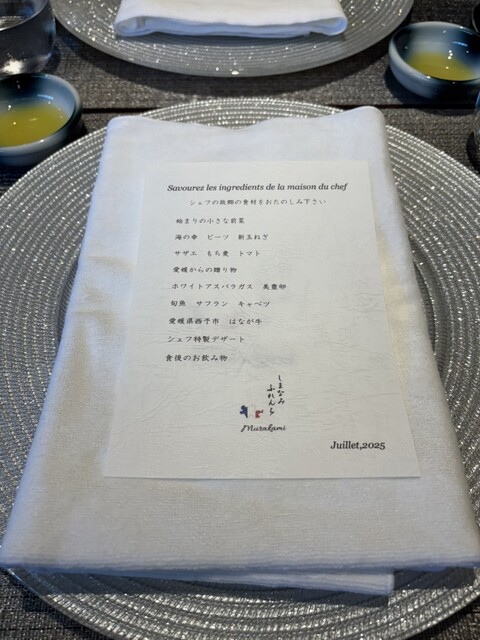 Savourez les ingredients de la maison du chef
シェフの故郷の食材をおたのしみ下さい
始まりの小さな前菜
海の幸 ビーツ 新玉ねぎ
サザエ もち麦 トマト
愛媛からの贈り物
ホワイトアスパラガス 美豊卵
旬魚 サフラン キャベツ
愛媛県西予市 はなが牛
シェフ特製デザート
食後のお飲み物
しまなみ
ふれんち
Murakami
Juillet,2025